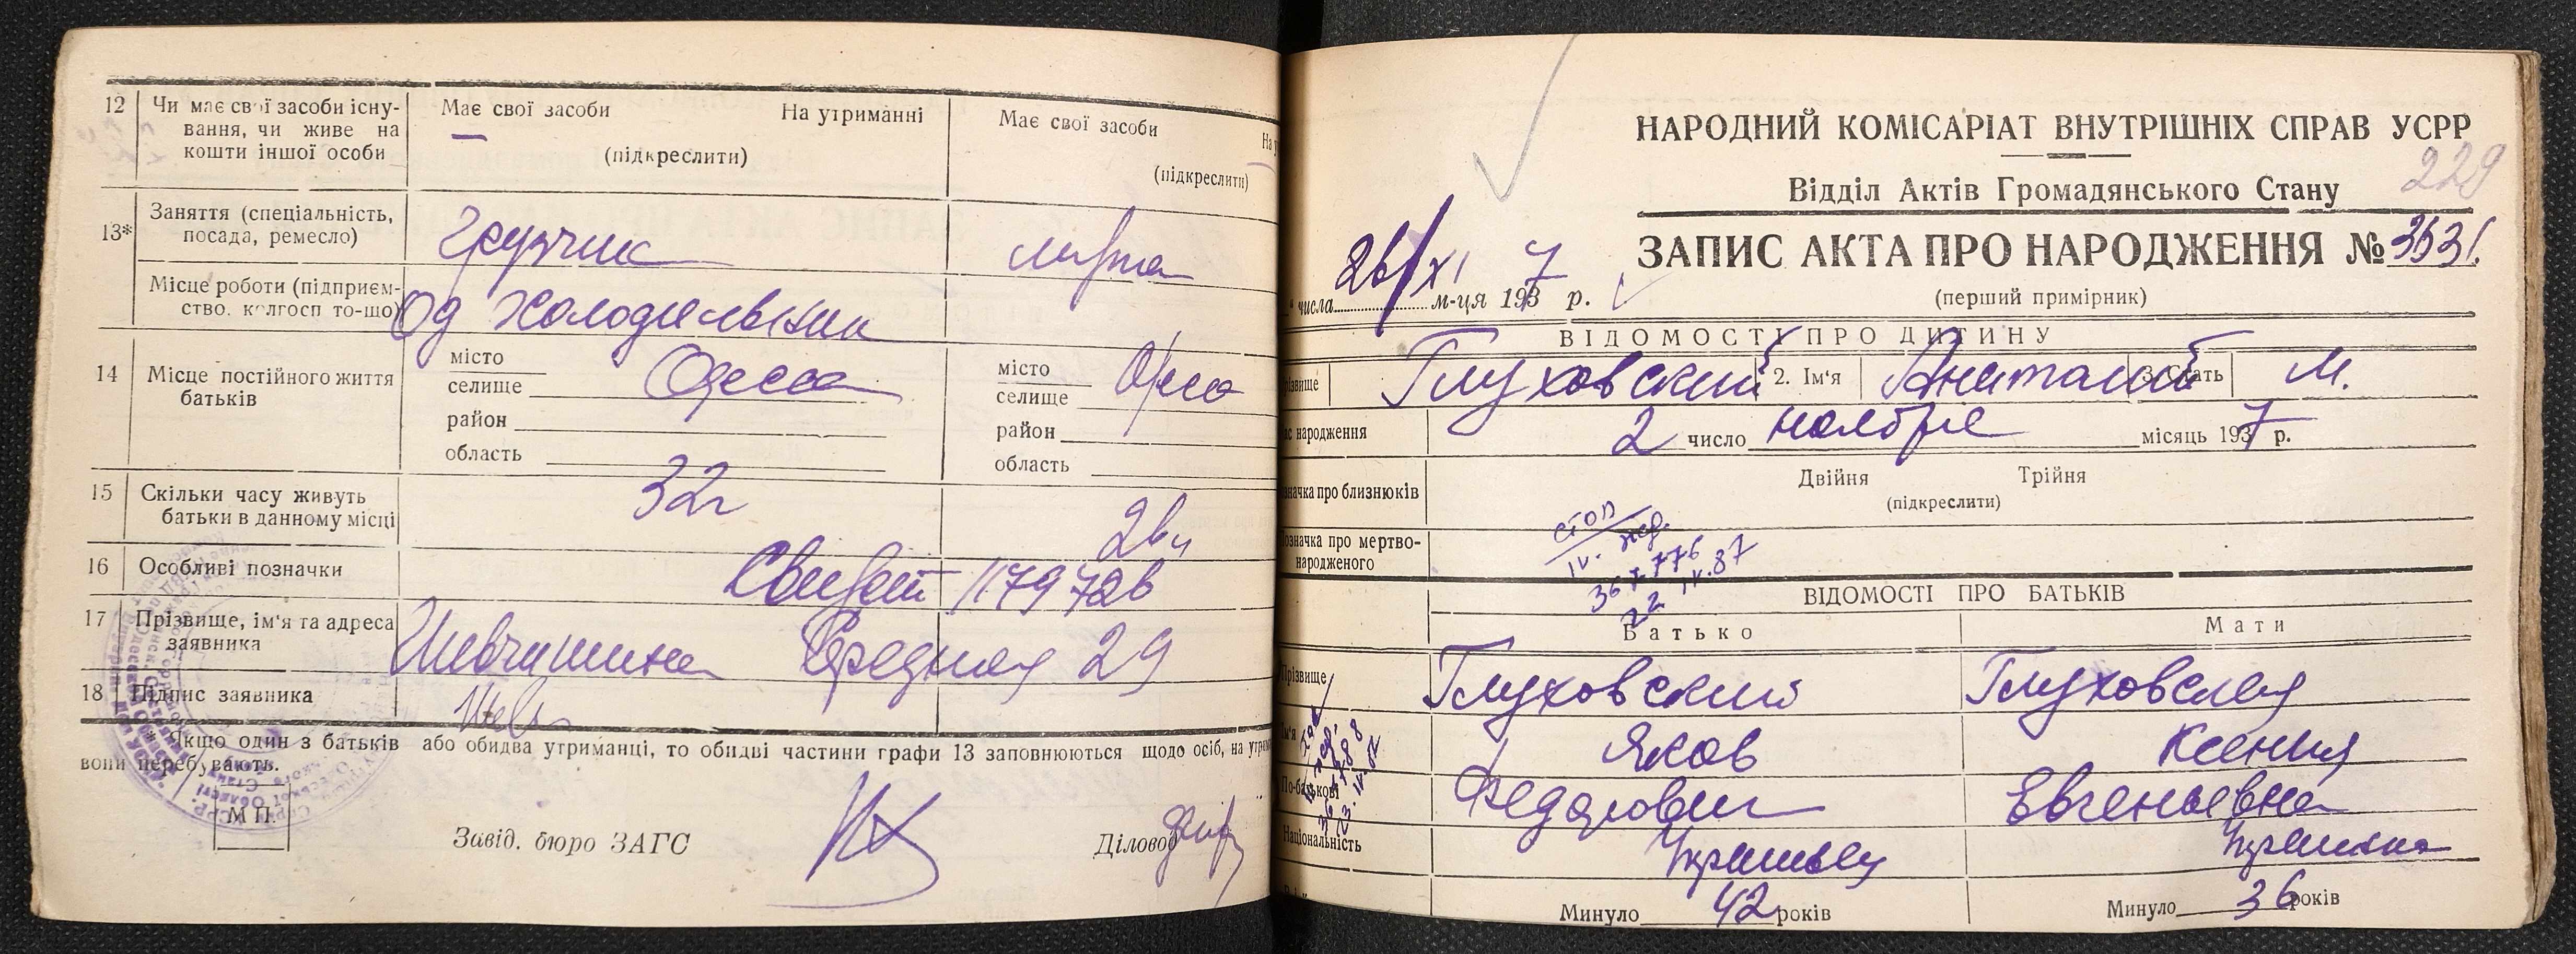 12 Чи має свої засоби існу-
вання, чи живе на
кошти іншої особи
Має свої засоби На утриманні
(підкреслити)
Має свої засоби
(підкреслити)
13* Заняття (спеціальність,
посада, ремесло)
Грузчик
Місце роботи (підприєм-
ство, колгосп то-що)
Од Холодильник
14 Місце постійного життя
батьків
місто
селище
Одесса
район
область
місто
селище
Одесса
район
область
15 Скільки часу живуть
батьки в данному місці
32г
16 Особливі позначки
17 Прізвище, ім'я та адреса
заявника
Средняя 29
18 Підпис заявника
* Якщо один з батьків або обидва утриманці, то обидві частини графи 13 заповнюються щодо осіб, на
вони перебувають.
М П.
Завід. бюро ЗАГС
Діловод
НАРОДНИЙ КОМІСАРІАТ ВНУТРІШНІХ СПРАВ УСРР
229
Відділ Актів Громадянського Стану
ЗАПИС АКТА ПРО НАРОДЖЕННЯ № 3631
(перший примірник)
числа 26/XI м-ця 1937 р.
ВІДОМОСТІ ПРО ДИТИНУ
Глуховский 2. Ім'я Анатолий 3. Стать М.
народження 2 число ноября місяць 1937 р.
про близнюків
Двійня Трійня
(підкреслити)
про мертво-
народженого
22 IV.87
ВІДОМОСТІ ПРО БАТЬКІВ
Батько Мати
Прізвище Глуховский Глуховская
Ім'я Яков Ксения
По-батькові Федорович Евгеньевна
Національність Украинец Украинка
Минуло 42 років Минуло 36 років